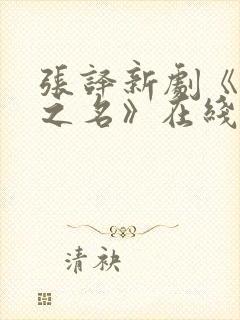 張譯新劇《
之名》在綫
清袂